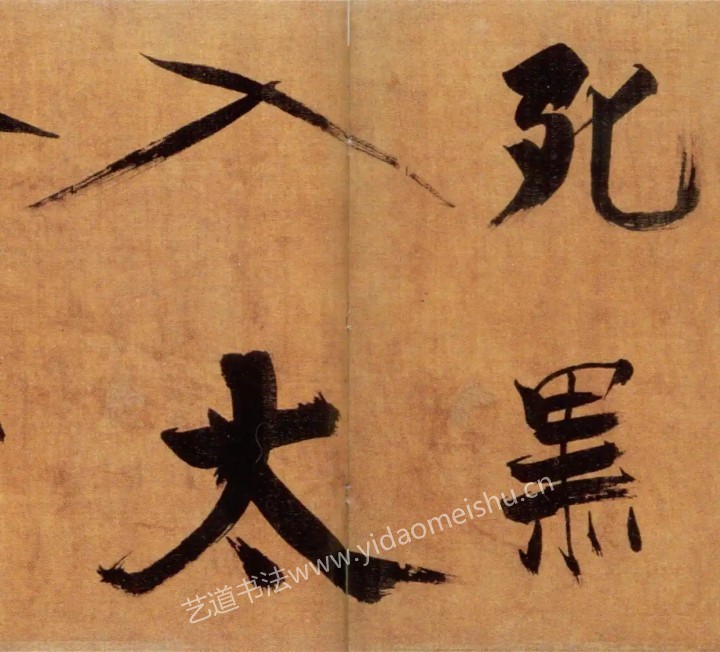 死黑
入太
艺道书法www.yidaomeishu.cn